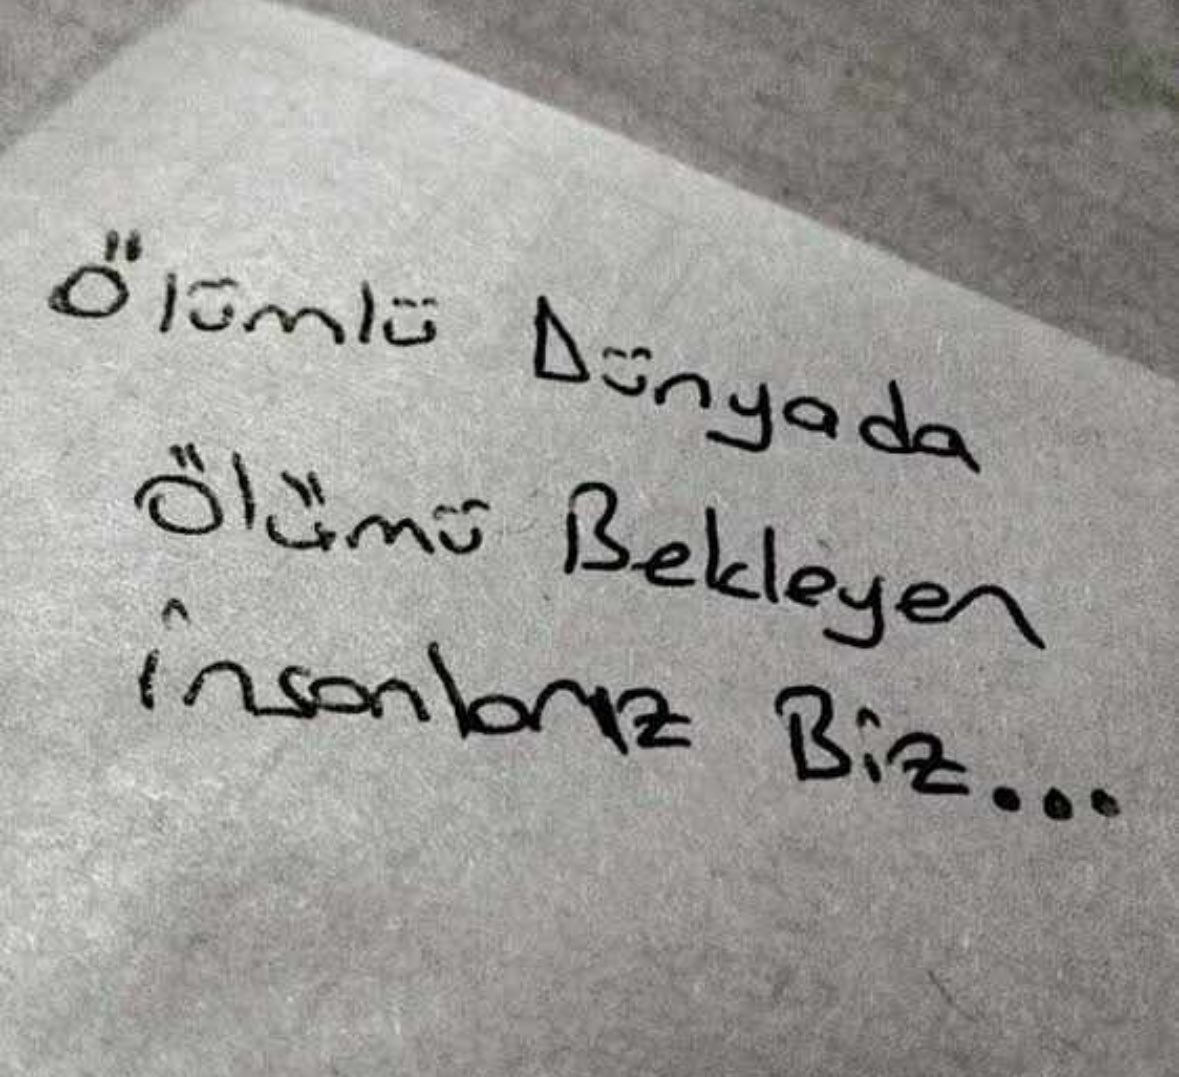 Ölümlü Dünyada
Ölümü Bekleyen
İnsanlarız Biz...